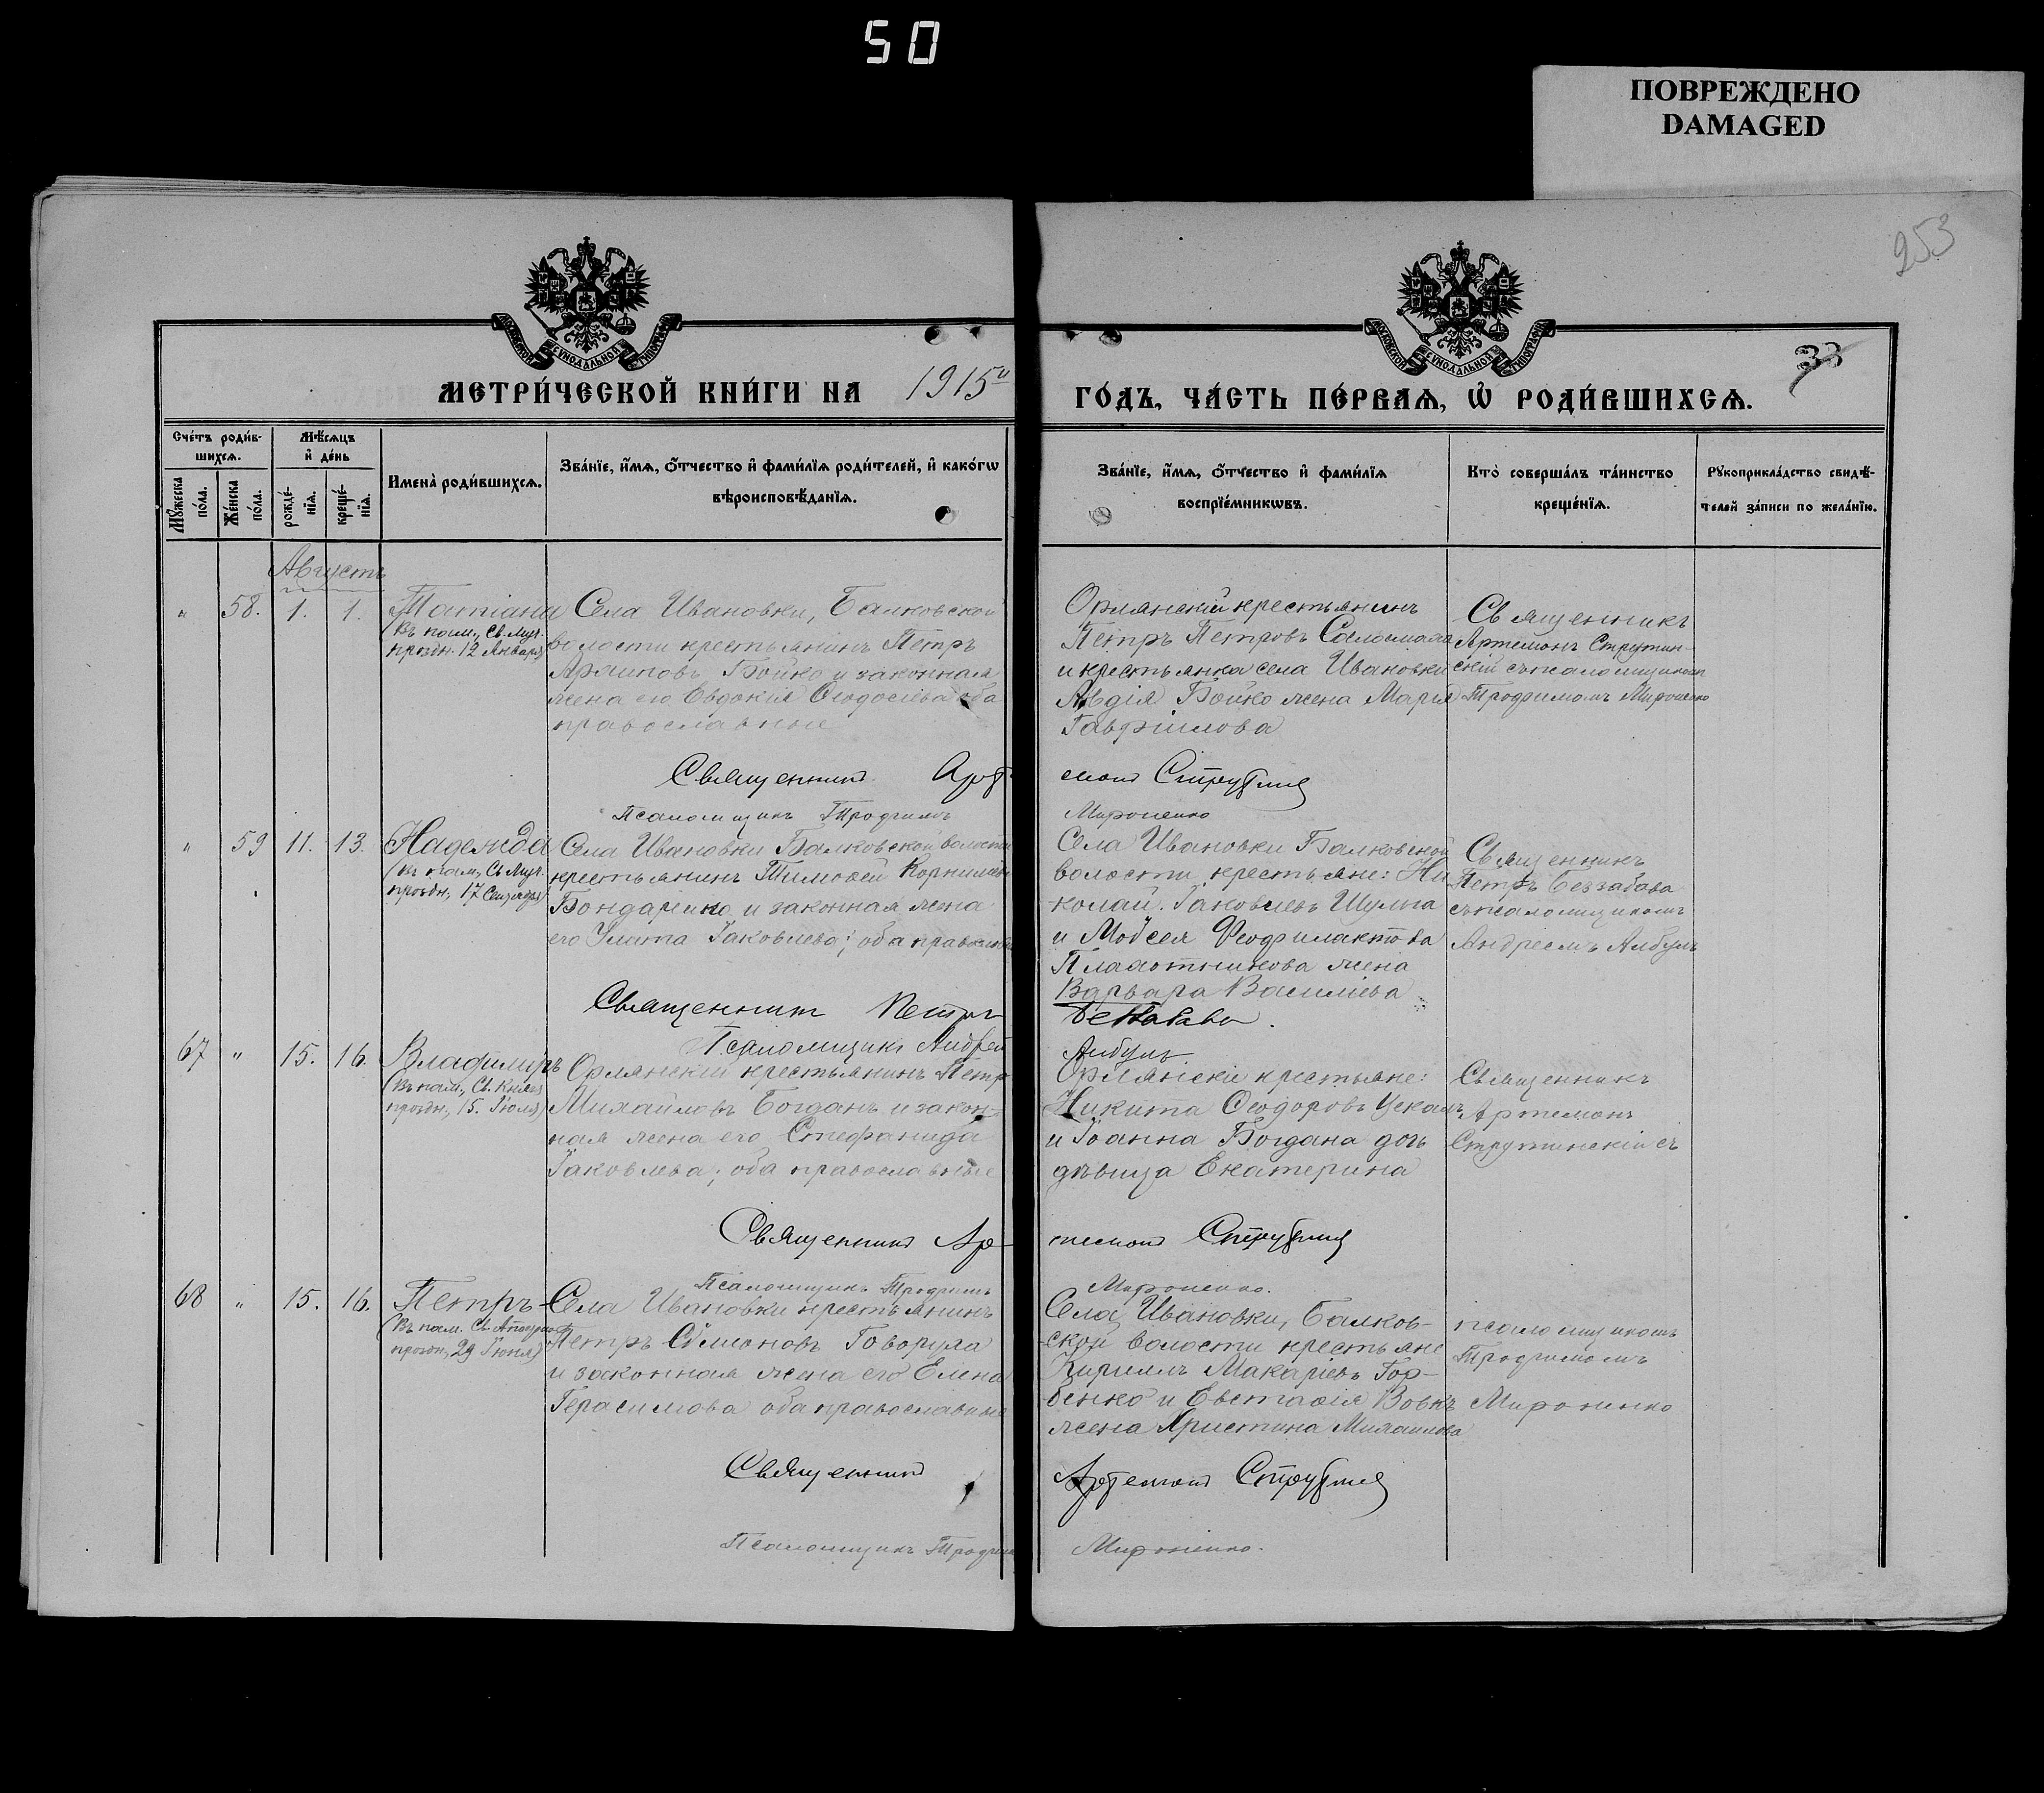 50
ПОВРЕЖДЕНО
DAMAGED
253
МОСКОВСКОЙ СѴНОДАЛЬНОЙ ТИПОГРАФІИ
МОСКОВСКОЙ СѴНОДАЛЬНОЙ ТИПОГРАФІИ
33
МЕТРИ́ЧЕСКОЙ КНИ́ГИ НА 1915й
ГО́ДЪ, ЧА́СТЬ ПЕ́РВАѦ, Ѡ҆ РОДИ́ВШИХСѦ.
Сче́тъ роди́в-
шихсѧ.
Мꙋжеска по́ла.
Же́нска по́ла.
Мѣ́сѧцъ
и҆ де́нь
рожде́-
нїѧ.
креще́-
нїѧ.
Имена̀ роди́вшихсѧ.
Зва́нїе, и҆́мѧ, ѻ҆́тчество и҆ фами́лїѧ роди́телей, и҆ како́гѡ
вѣроисповѣ́данїѧ.
Зва́нїе, и҆́мѧ, ѻ҆́тчество и҆ фами́лїѧ
воспрїе́мникѡвъ.
Кто̀ соверша́лъ та́инство
креще́нїѧ.
Рꙋкоприкла́дство свидѣ́-
телей за́писи по жела́нїю.
Августъ
" 58. 1. 1. Татіана
(Въ пам., Св. Муч.
праздн. 12 Января)
Села Ивановки, Балковской
волости крестьянинъ Петръ
Архиповъ Бойко и законная
жена его Евдокія Ѳеодосіева оба
православные
Орлянскій крестьянинъ
Петръ Петровъ
и крестьянка села Ивановки
Авдія Бойко жена Марія
Гавріилова
Священникъ
Артемонъ Струтин-
скій съ псаломщикомъ
Трофимомъ Мироненко
Священникъ Арте
монъ Струтинс
Псаломщикъ Трофимъ
Мироненко
" 59 11. 13. Надежда
(въ пам., Св. Муч.
праздн., 17 Сентября)
Села Ивановки Балковской волости
крестьянинъ Тимоѳей Корниліевъ
Бондаренко и законная жена
его Улита Іаковлева; оба православн
Села Ивановки Балковской
волости, крестьяне: Ни
колай Іаковлевъ Шульга
и Моѵсея Феофилактова
Плахотникова жена
Варвара Василіева
Священникъ
Петръ Беззабава
съ псаломщикомъ
Андреемъ Албулъ
Священникъ Петръ
Беззабава.
Псаломщикъ Андрей
Албулъ
67 " 15. 16. Владиміръ
(Въ пам., Св. Князя
праздн., 15. Іюля)
Орлянскій крестьянинъ Петръ
Михайловъ Богданъ и закон-
ная жена его Стефанида
Іаковлева; оба православные
Орлянскіе крестьяне:
Никита Ѳеодоровъ
и Іоанна Богдана дочь
дѣвица Екатерина
Священникъ
Артемонъ
Струтинскій съ
Священникъ Ар-
темонъ Струтинс
Псаломщикъ Трофимъ
Мироненко.
68 " 15. 16. Петръ
(Въ пам. Св. Апостола
праздн., 29 Іюня)
Села Ивановки крестьянинъ
Петръ Сѵмеоновъ Говоруха
и законная жена его Елена
Герасимова оба православные
Села Ивановки, Балков-
ской волости крестьяне
Кириллъ Макаріевъ Гор-
бенко и Евстафія Вовкъ
жена Христина Михайлова
псаломщикомъ
Трофимомъ
Мироненко
Священникъ
Артемонъ Струтинс
Псаломщикъ Трофимъ
Мироненко.